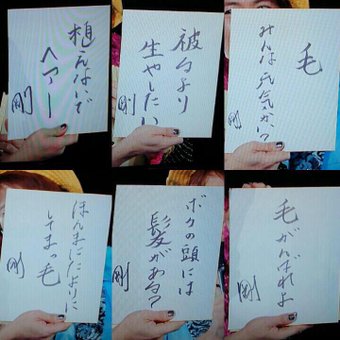 ヘアー
剛
被るより
生やしたい
剛
毛
みんな元気かい?
剛
ほんま たよりに
してまっ毛
剛
ボクの頭には
髪がある?
剛
毛がんばれよ
剛